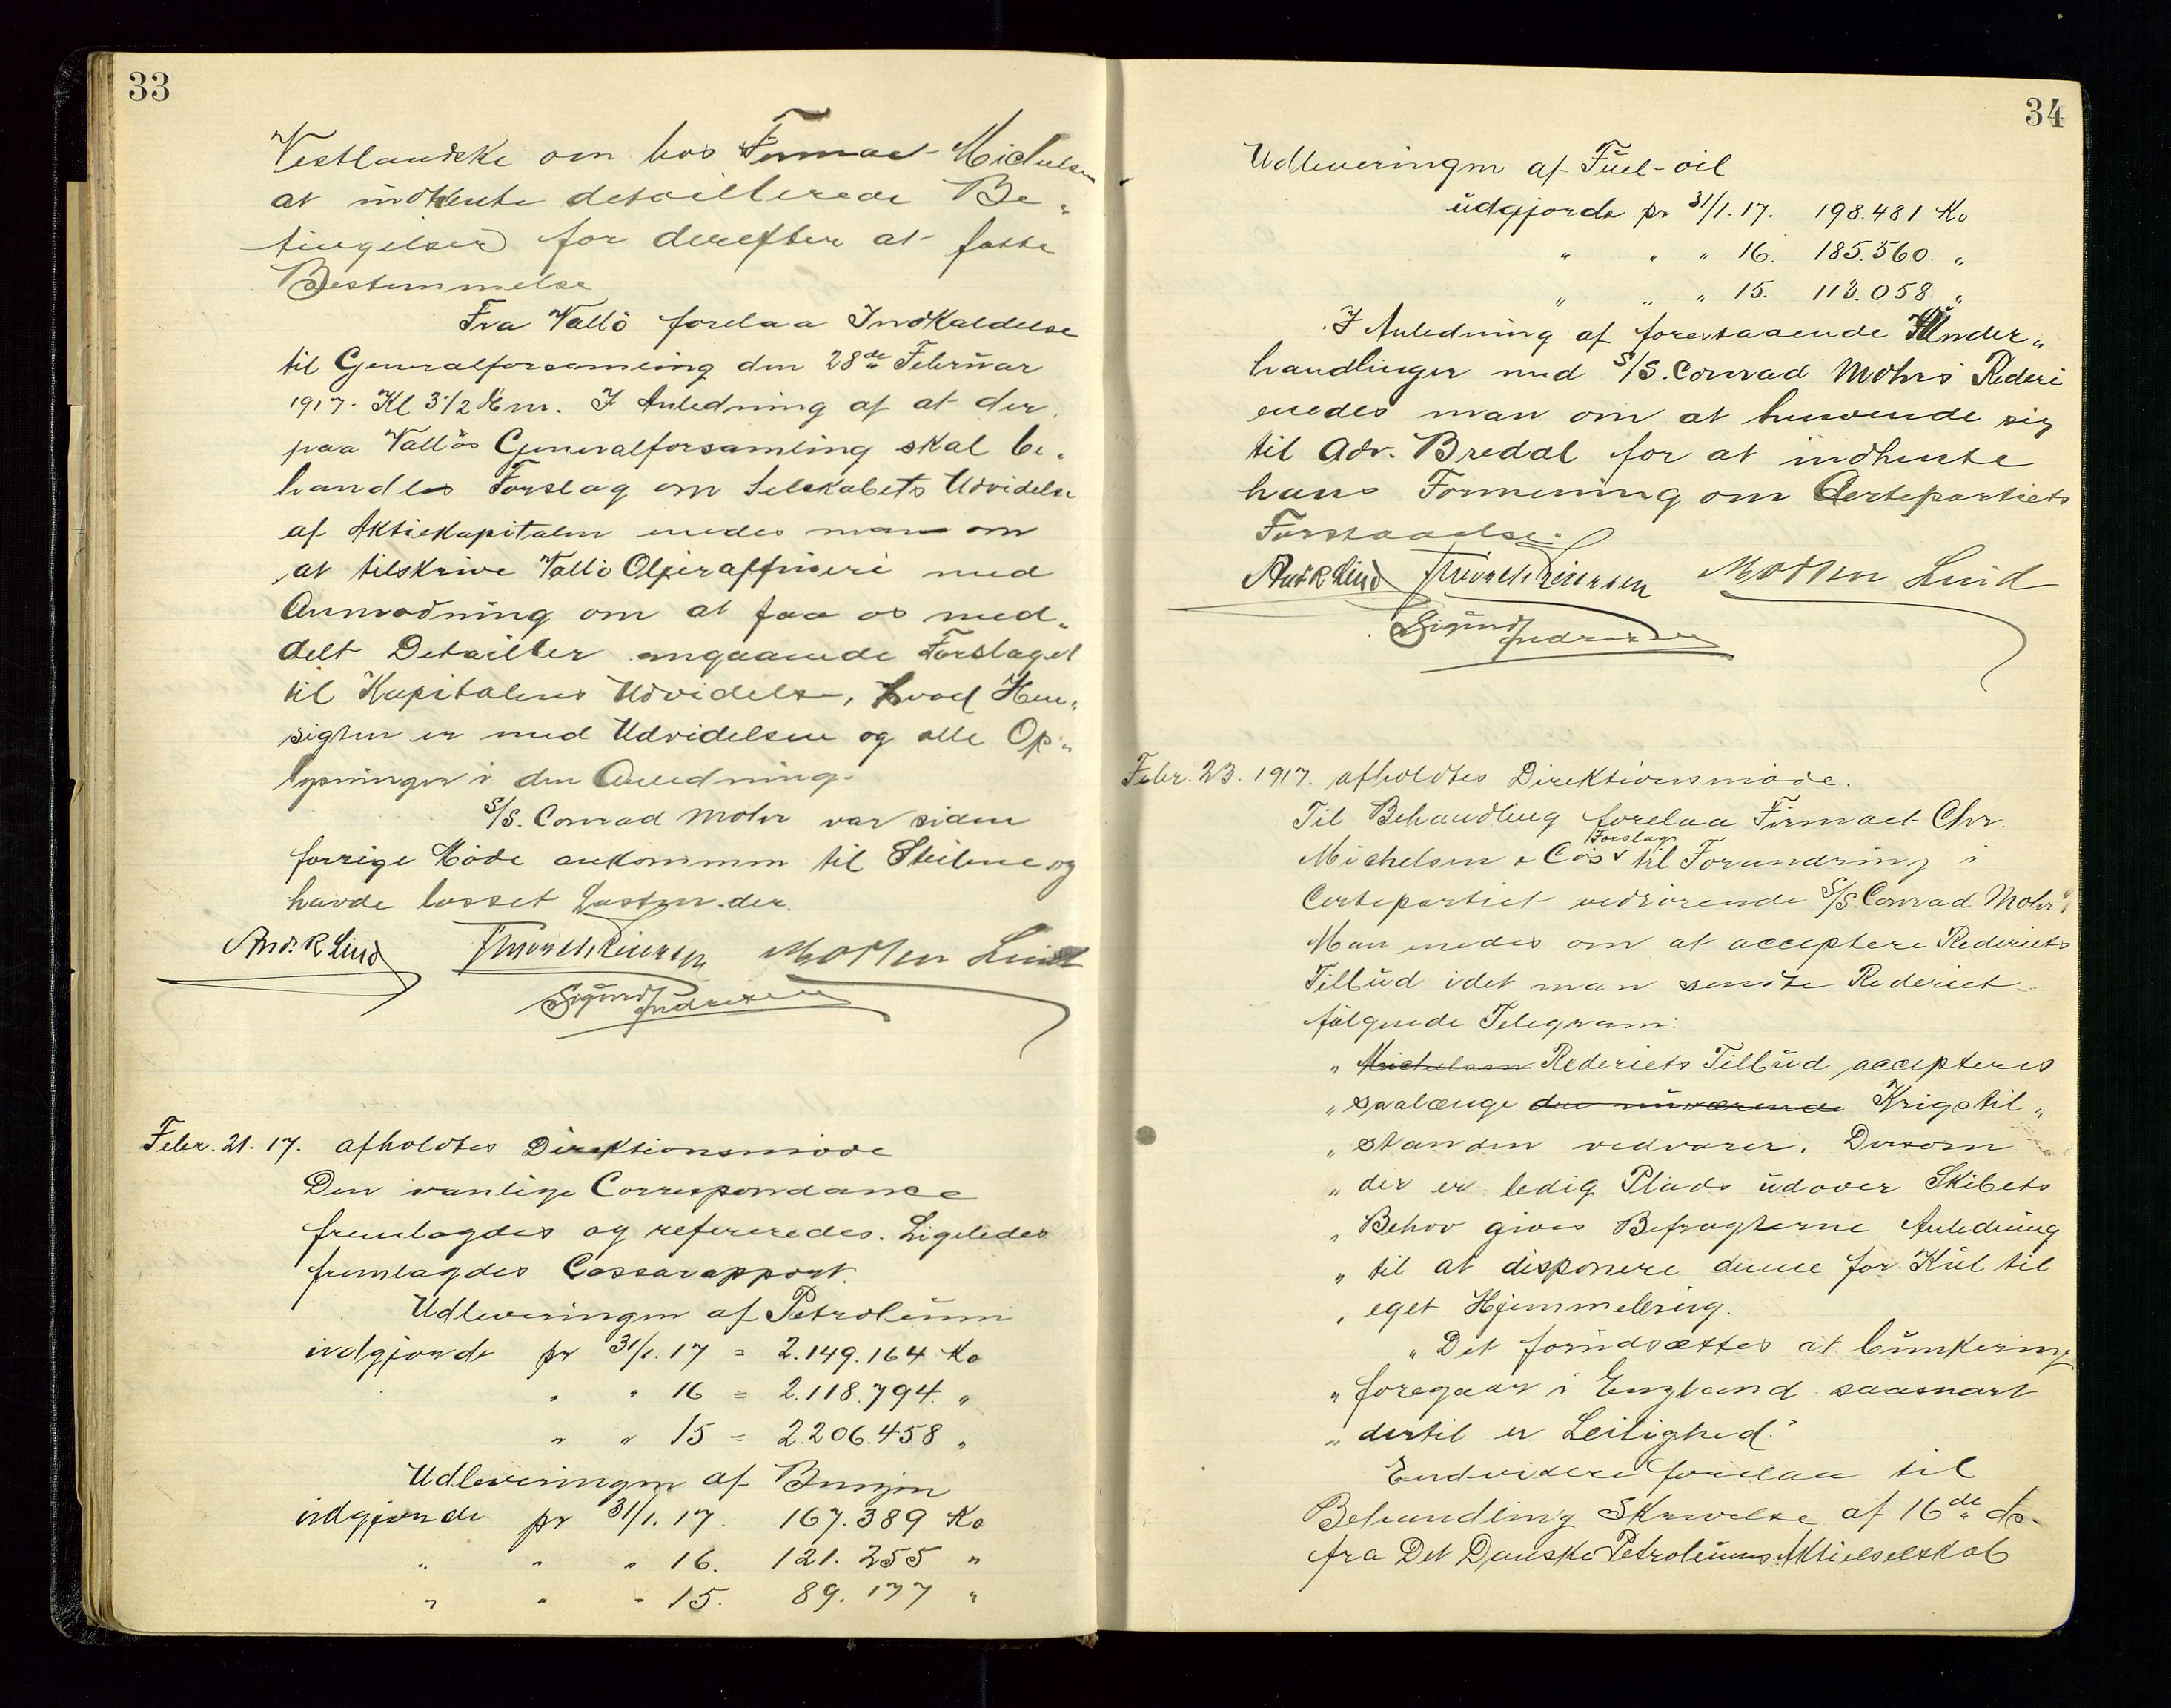 33
Vestlandske om hos Firmaet Michelsen
at indhente detaillerede Be„
tingelser for derefter at fatte
Bestemmelse
Fra Vallö forelaa Indkaldelse
til Generalforsamling den 28de Februar
1917. Kl 3 1/2 Em. I Anledning af at der
paa Vallös Generalforsamling skal be„
handles Forslag om Selskabets Udvidelse
af Aktiekapitalen enedes man om
at tilskrive Vallö Oljeraffineri med
Anmodning om at faa os med„
delt Detailler angaaende Forslaget
til Kapitalens Udvidelse, hvad Hen„
sigten er med Udvidelsen og alle Op„
lysninger i den Anledning.
S/S. Conrad Mohr var siden
forrige Möde ankommen til Steilene og
havde losset Lasten der.
And. R Lind Thorsch Reimersen Morten Lind
Sigurd Andresen
Febr. 21. 17. afholdtes Direktionsmöde
Den vanlige Correspondance
fremlagdes og refereredes. Ligeledes
fremlagdes Cassarapport.
Udleveringen af Petroleum
udgjorde pr 31/1. 17 = 2.149.164 Ko
„ „ 16 = 2.118.794 „
„ „ 15 = 2.206.458 „
Udleveringen af Benzin
udgjorde pr 31/1. 17. 167.389 Ko
„ „ „ 16. 121.255 „
„ „ „ 15. 89.177 „
34
Udleveringen af Fuel-oil
udgjorde pr 31/1. 17. 198.481 Ko
„ „ „ 16. 185.560 „
„ „ „ 15. 113.058 „
I Anledning af forestaaende Under„
handlinger med S/S. Conrad Mohrs Rederi
enedes man om at henvende sig
til Adv. Bredal for at indhente
hans Formening om Certepartiets
Forstaaelse.
And R Lind Thorsch Reimersen Morten Lind
Sigurd Andresen
Febr. 23. 1917. afholdtes Direktionsmöde.
Til Behandling forelaa Firmaet Chr.
Michelsen & Co's Forslag til Forandring i
Certepartiet vedrörende S/S. Conrad Mohr„
Man enedes om at acceptere Rederiets
Tilbud idet man sendte Rederiet
fölgende Telegram:
„ Michelsen Rederiets Tilbud accepteres
„ saalænge den nuværende Krigstil„
„ standen vedvarer. Dersom
„ der er ledig Plads udover Skibets
„ Behov gives Befragterne Anledning
„ til at disponere denne for Kul til
„ eget Hjemmebring.
„ Det forudsættes at bunkering
„ foregaar i England saasnart
„ dertil er Leilighed."
Endvidere forelaa til
Behandling Skrivelse af 16de ds.
fra Det Danske Petroleums Aktieselskab